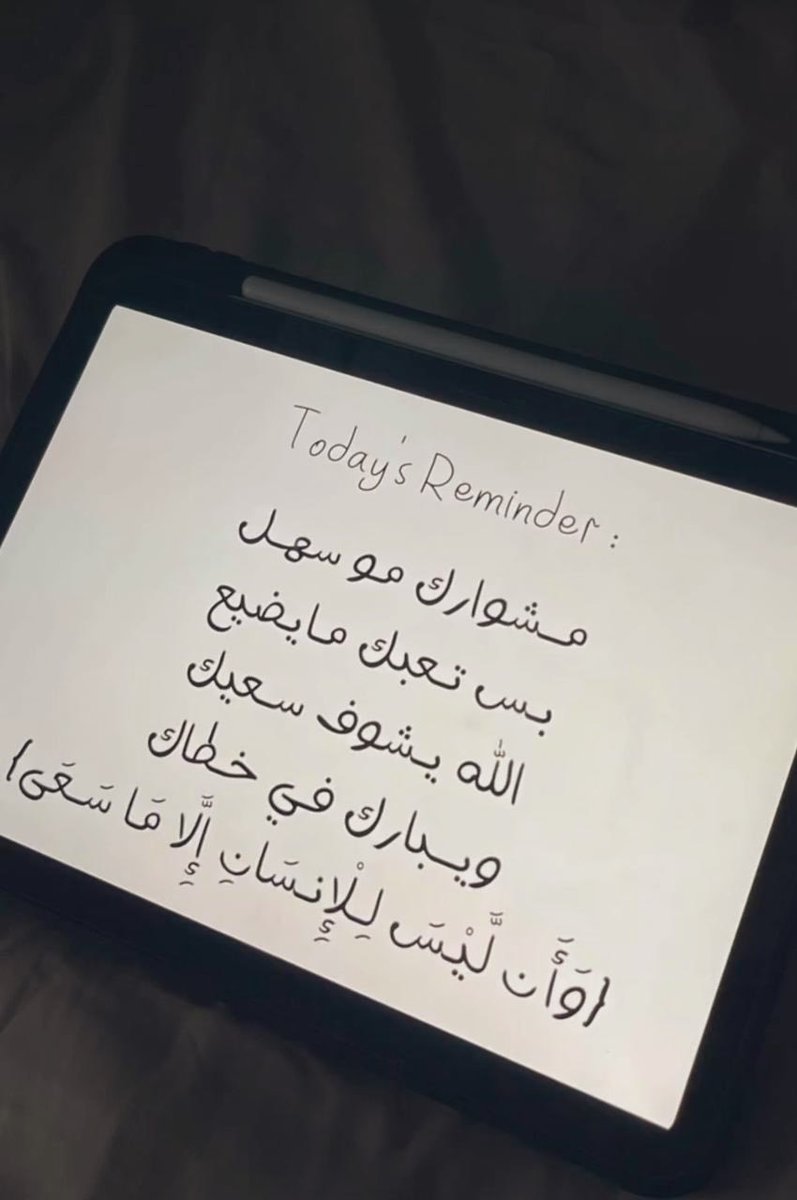 Today's Reminder :
مشوارك مو سهل
بس تعبك مايضيع
الله يشوف سعيك
ويبارك في خطاك
{وَأَن لَّيْسَ لِلْإِنسَانِ إِلَّا مَا سَعَى}